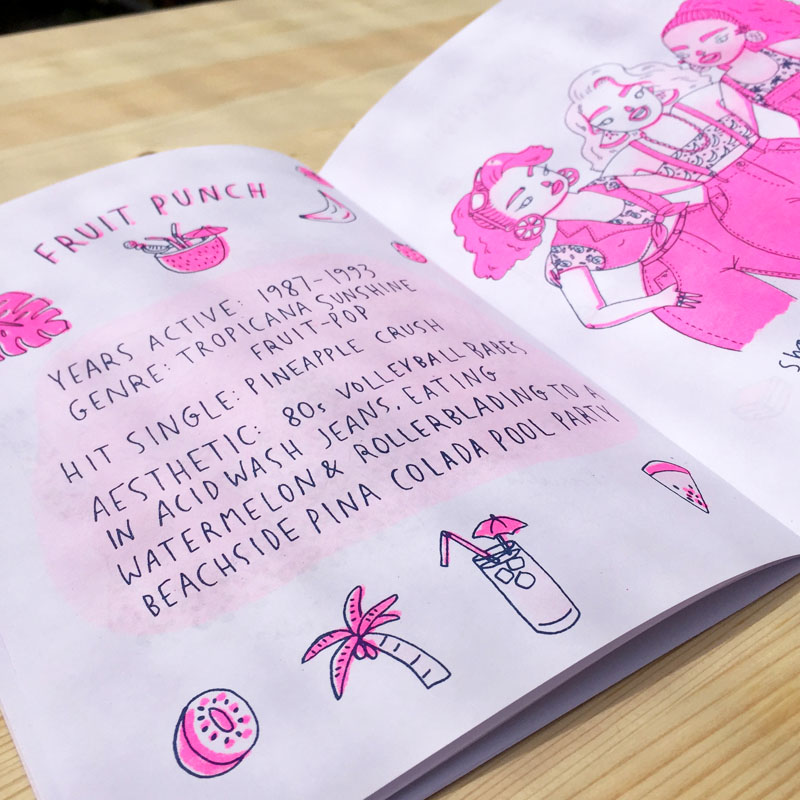 FRUIT PUNCH
YEARS ACTIVE: 1987-1993
GENRE: TROPICANA SUNSHINE
FRUIT-POP
HIT SINGLE: PINEAPPLE CRUSH
AESTHETIC: 80s VOLLEYBALL BABES
IN ACID WASH JEANS, EATING
WATERMELON & ROLLERBLADING TO A
BEACHSIDE PINA COLADA POOL PARTY